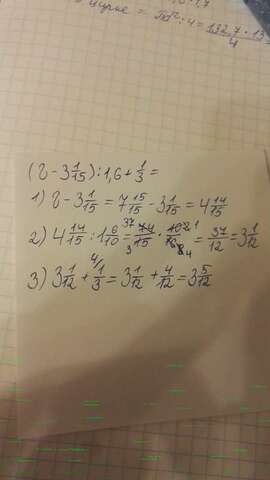 (8-3 1/15):1,6+1/3=
1) 8-3 1/15=7 15/15-3 1/15=4 14/15
2) 4 14/15:1 6/10=74/15·10/16=37/12=3 1/12
3) 3 1/12+1/3=3 1/12+4/12=3 5/12